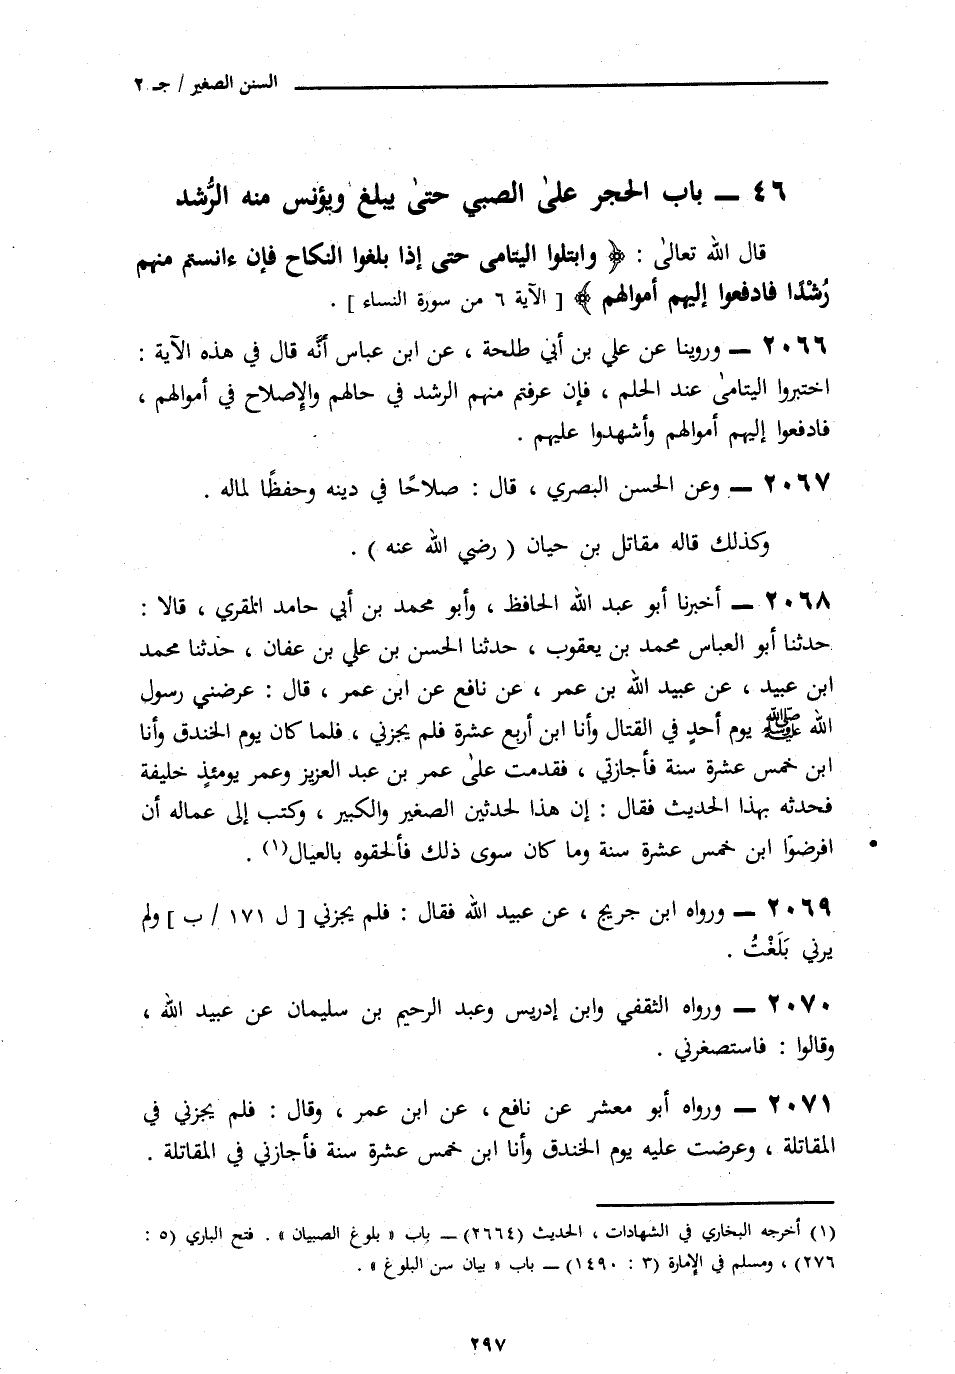 السنن الصغير / جـ ٢
٤٦ ــ باب الحجر علىٰ الصبي حتىٰ يبلغ ويؤنس منه الرُّشد
قال الله تعالىٰ : ﴿ وابتلوا اليتامى حتى إذا بلغوا النكاح فإن ءانستم منهم
رُشْدًا فادفعوا إليهم أموالهم ﴾ [ الآية ٦ من سورة النساء ] .
٢٠٦٦ ــ وروينا عن علي بن أبي طلحة ، عن ابن عباس أنَّه قال في هذه الآية :
اختبروا اليتامىٰ عند الحلم ، فإن عرفتم منهم الرشد في حالهم والإصلاح في أموالهم ،
فادفعوا إليهم أموالهم وأشهدوا عليهم .
٢٠٦٧ ــ وعن الحسن البصري ، قال : صلاحًا في دينه وحفظًا لماله .
وكذلك قاله مقاتل بن حيان ( رضي الله عنه ) .
٢٠٦٨ ــ أخبرنا أبو عبد الله الحافظ ، وأبو محمد بن أبي حامد المقري ، قالا :
حدثنا أبو العباس محمد بن يعقوب ، حدثنا الحسن بن علي بن عفان ، حدثنا محمد
ابن عبيد ، عن عبيد الله بن عمر ، عن نافع عن ابن عمر ، قال : عرضني رسول
الله ﷺ يوم أحدٍ في القتال وأنا ابن أربع عشرة فلم يجزني ، فلما كان يوم الخندق وأنا
ابن خمس عشرة سنة فأجازتي ، فقدمت علىٰ عمر بن عبد العزيز وعمر يومئذٍ خليفة
فحدثه بهذا الحديث فقال : إن هذا لحدثين الصغير والكبير ، وكتب إلى عماله أن
افرضوّا ابن خمس عشرة سنة وما كان سوى ذلك فألحقوه بالعيال(١) .
٢٠٦٩ ــ ورواه ابن جريج ، عن عبيد الله فقال : فلم يجزني [ ل ١٧١ / ب ] ولم
يرني بَلَغْتُ .
٢٠٧٠ ــ ورواه الثقفي وابن إدريس وعبد الرحيم بن سليمان عن عبيد الله ،
وقالوا : فاستصغرني .
٢٠٧١ ــ ورواه أبو معشر عن نافع ، عن ابن عمر ، وقال : فلم يجزني في
المقاتلة ، وعرضت عليه يوم الخندق وأنا ابن خمس عشرة سنة فأجازني في المقاتلة .
(١) أخرجه البخاري في الشهادات ، الحديث (٢٦٦٤) ــ باب « بلوغ الصبيان » . فتح الباري (٥ :
٢٧٦) ، ومسلم في الإمارة (٣ : ١٤٩٠) ــ باب « بيان سن البلوغ » .
٢٩٧